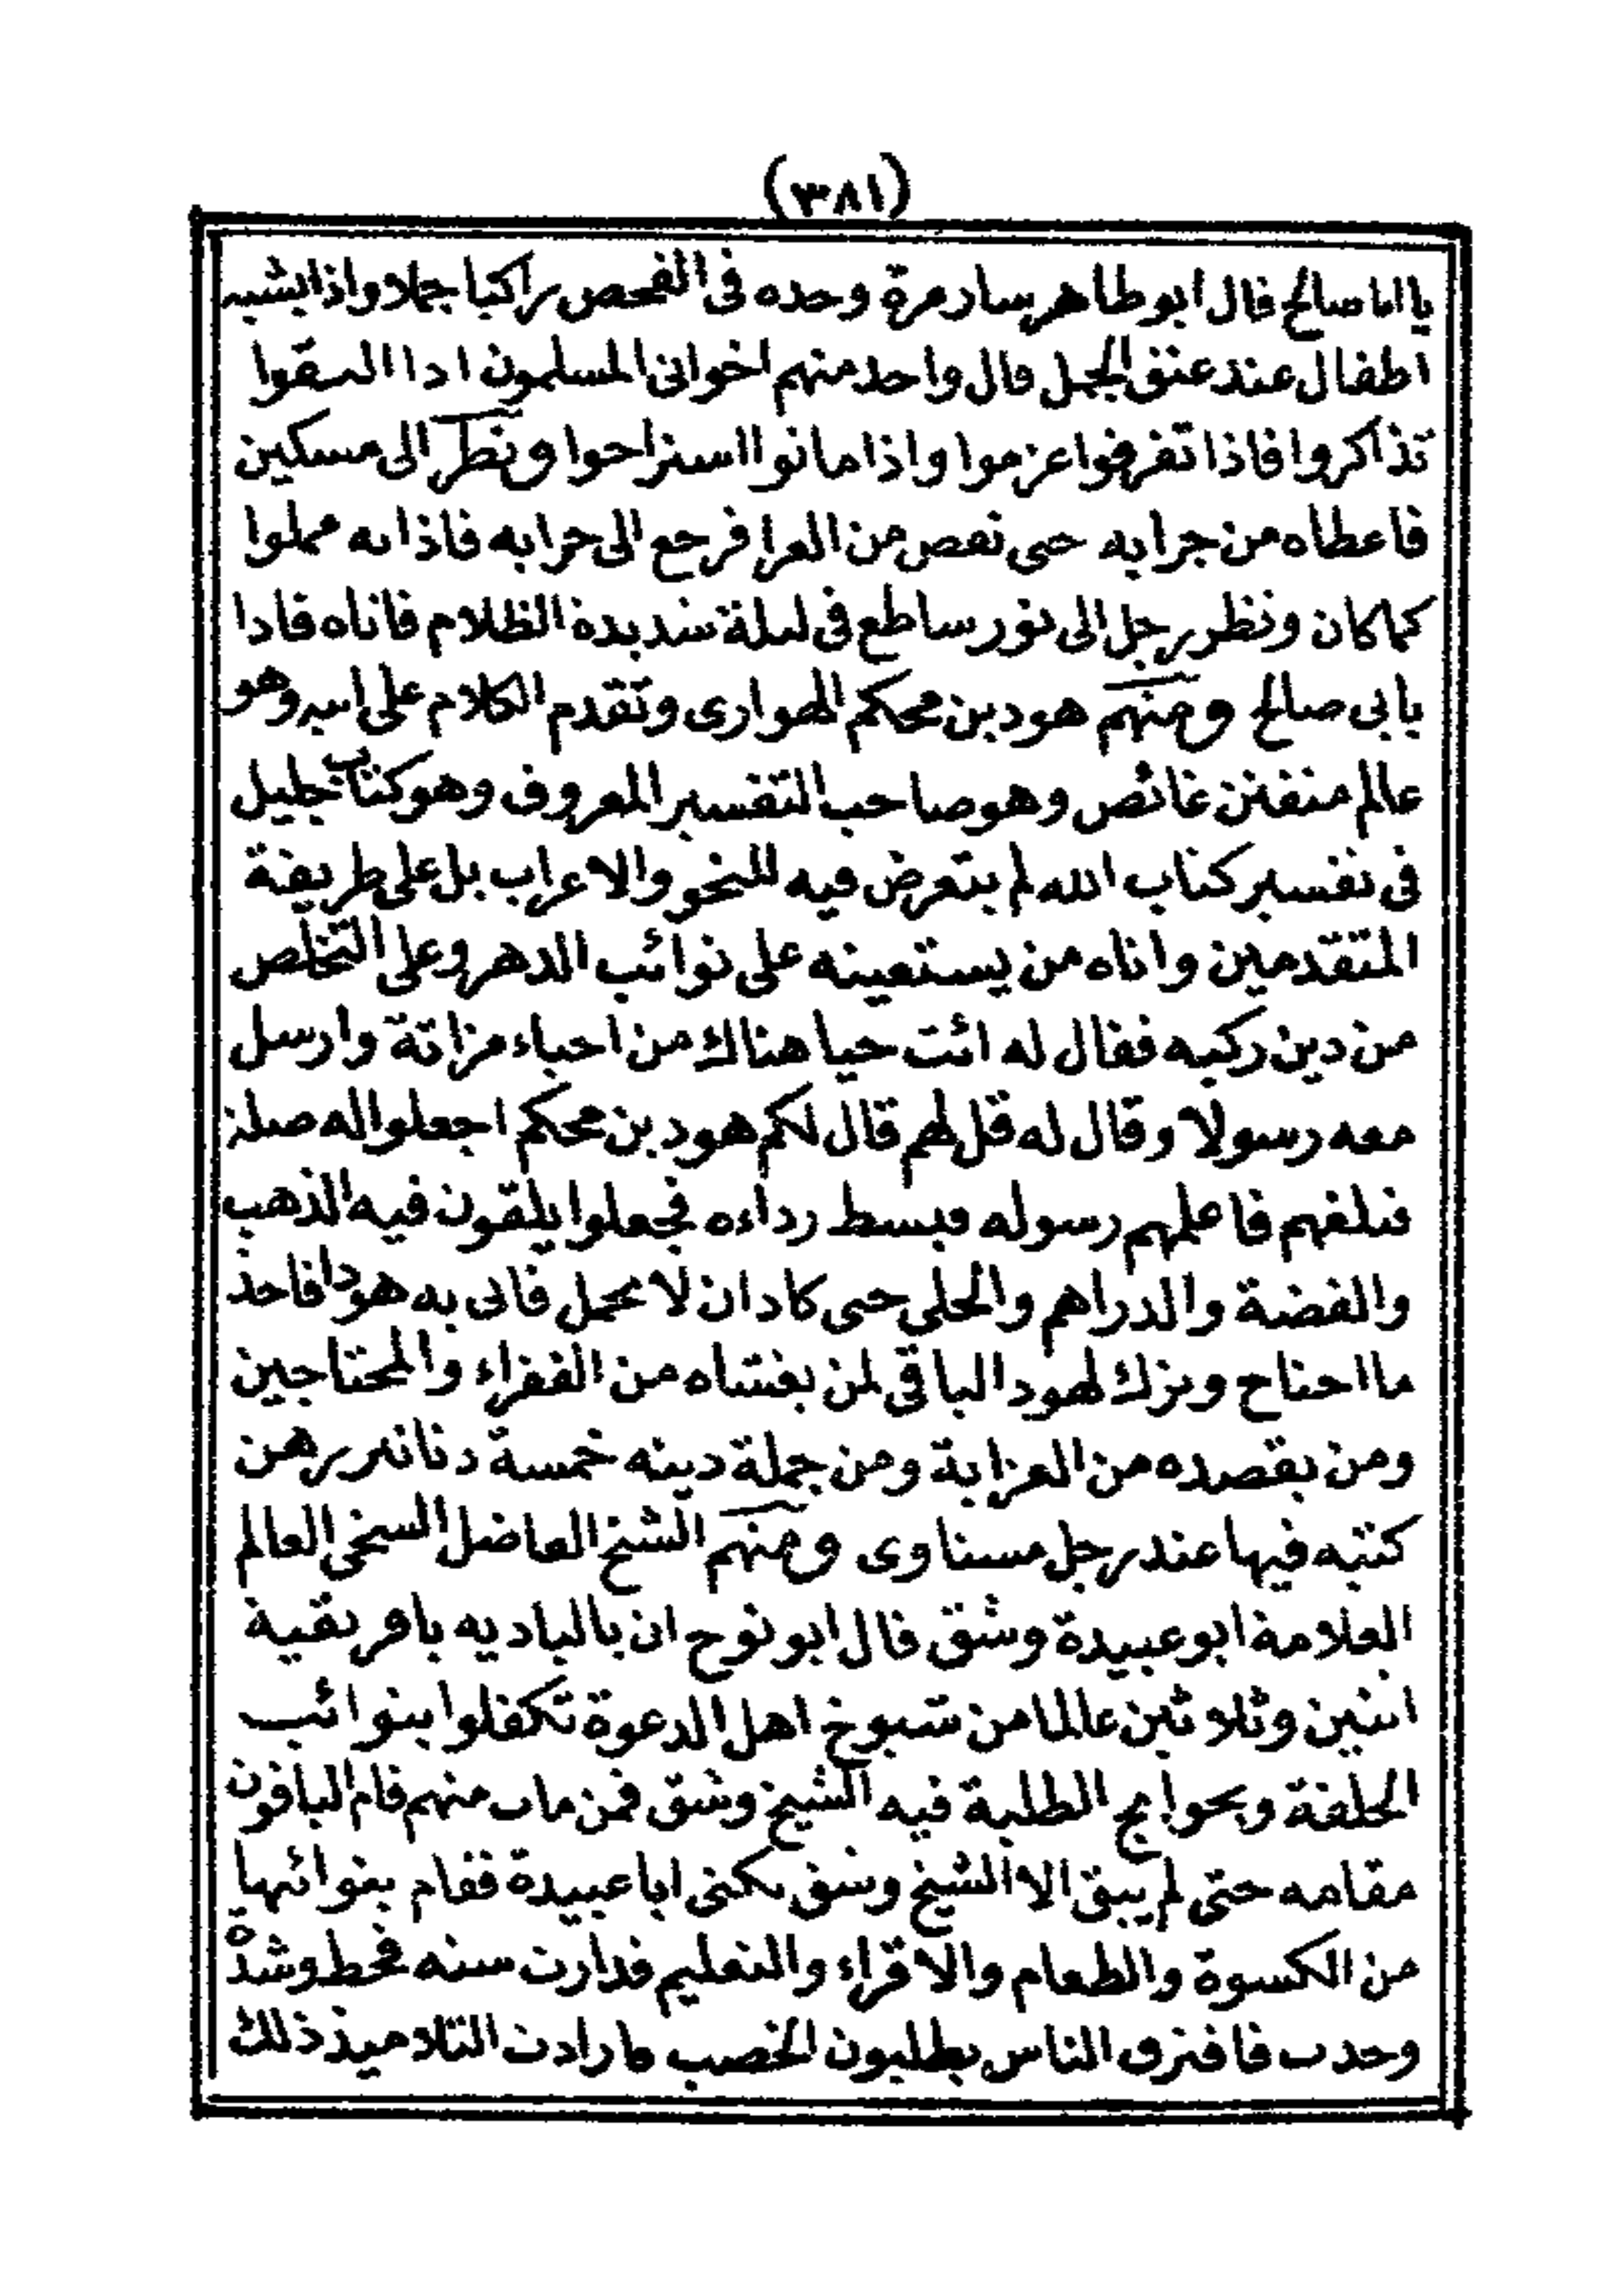 (٣٨١)
يا ابا صالح قال ابو طاهر سار مرة وحده فى الفحص راكبا جملا واذا بشبه
اطفال عند عنق الجمل قال واحد منهم اخوانى المسلمون اذا التقوا
تذاكروا فاذا تفرقوا عزموا واذا ماتوا استراحوا ونظر الى مسكين
فاعطاه من جرابه حتى نقص من العرا فرجع الى جرابه فاذا به مملوا
كما كان ونظر رجل الى نور ساطع فى ليلة شديدة الظلام فاتاه فاذا
بابى صالح ومنهم هود بن محكم الهوارى وتقدم الكلام على ابيه وهو
عالم متفنن غائص وهو صاحب التفسير المعروف وهو كتاب جليل
فى تفسير كتاب الله لم يتعرض فيه للنحو والاعراب بل على طريقة
المتقدمين واتاه من يستعينه على نوائب الدهر وعلى التخلص
من دين ركبه فقال له ائت حيا هناك من احياء مزاتة وارسل
معه رسولا وقال له قل لهم قال لكم هود بن محكم اجعلوا له صلة
فبلغهم فاعلمهم رسوله فبسط رداءه فجعلوا يلقون فيه الذهب
والفضة والدراهم والحلى حتى كاد ان لا يحمل فاتى به هودا فاخذ
ما احتاج وترك لهود الباقى لمن يغشاه من الفقراء والمحتاجين
ومن يقصده من العزابة ومن جملة دينه خمسة دنانير رهن
كتبه فيها عند رجل مسناوى ومنهم الشيخ الفاضل السخى العالم
العلامة ابو عبيدة وشق قال ابو نوح ان بالباديه بافريقية
اثنين وثلاثين عالما من شيوخ اهل الدعوة تكفلوا بنوائب
الحلقة وبحوايج الطلبة فيه الشيخ وشق فمن مات منهم قام الباقون
مقامه حتى لم يبق الا الشيخ وشق يكنى ابا عبيدة فقام بنوائبها
من الكسوة والطعام والاقراء والتعليم فدارت سنه قحط وشدة
وجدب فافترق الناس يطلبون الخصب فارادت التلاميذ ذلك